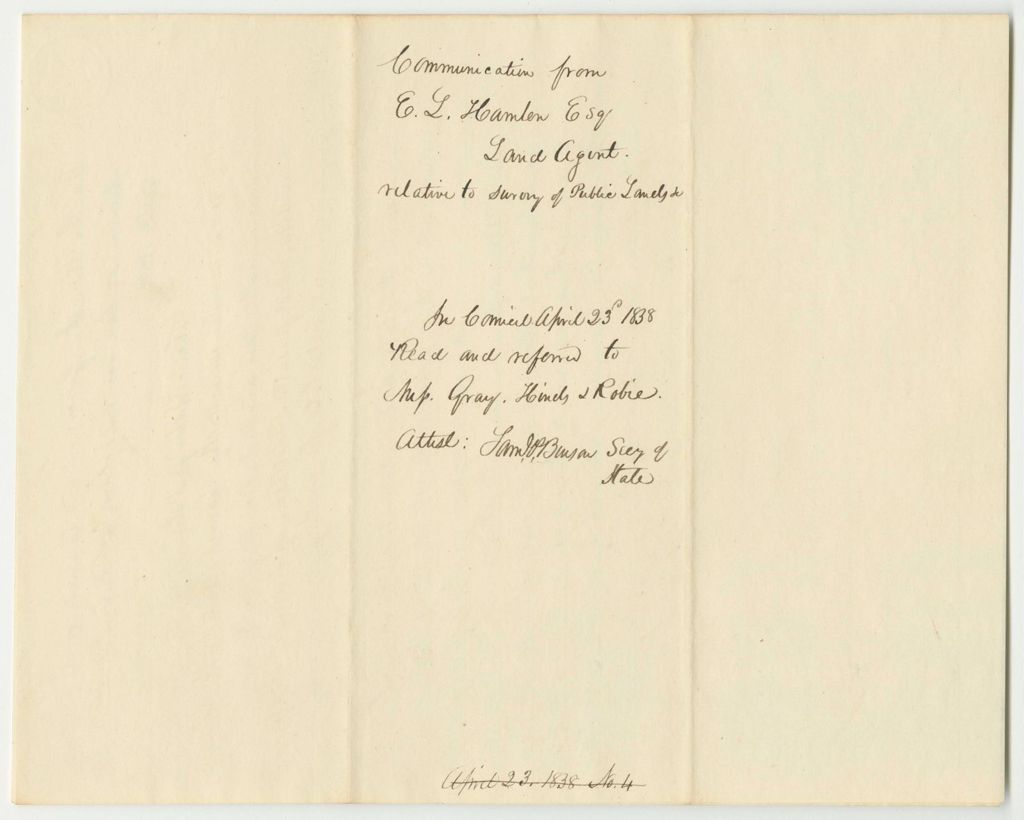 Communication from
E. L. Hamlen Esq
Land Agent.
relative to survey of Public Lands &
In Council April 23d 1838
Read and referred to
Mess. Gray. Hinds & Robie.
Attest: Saml. P. Benson Secy of
State
April 23. 1838 No. 4